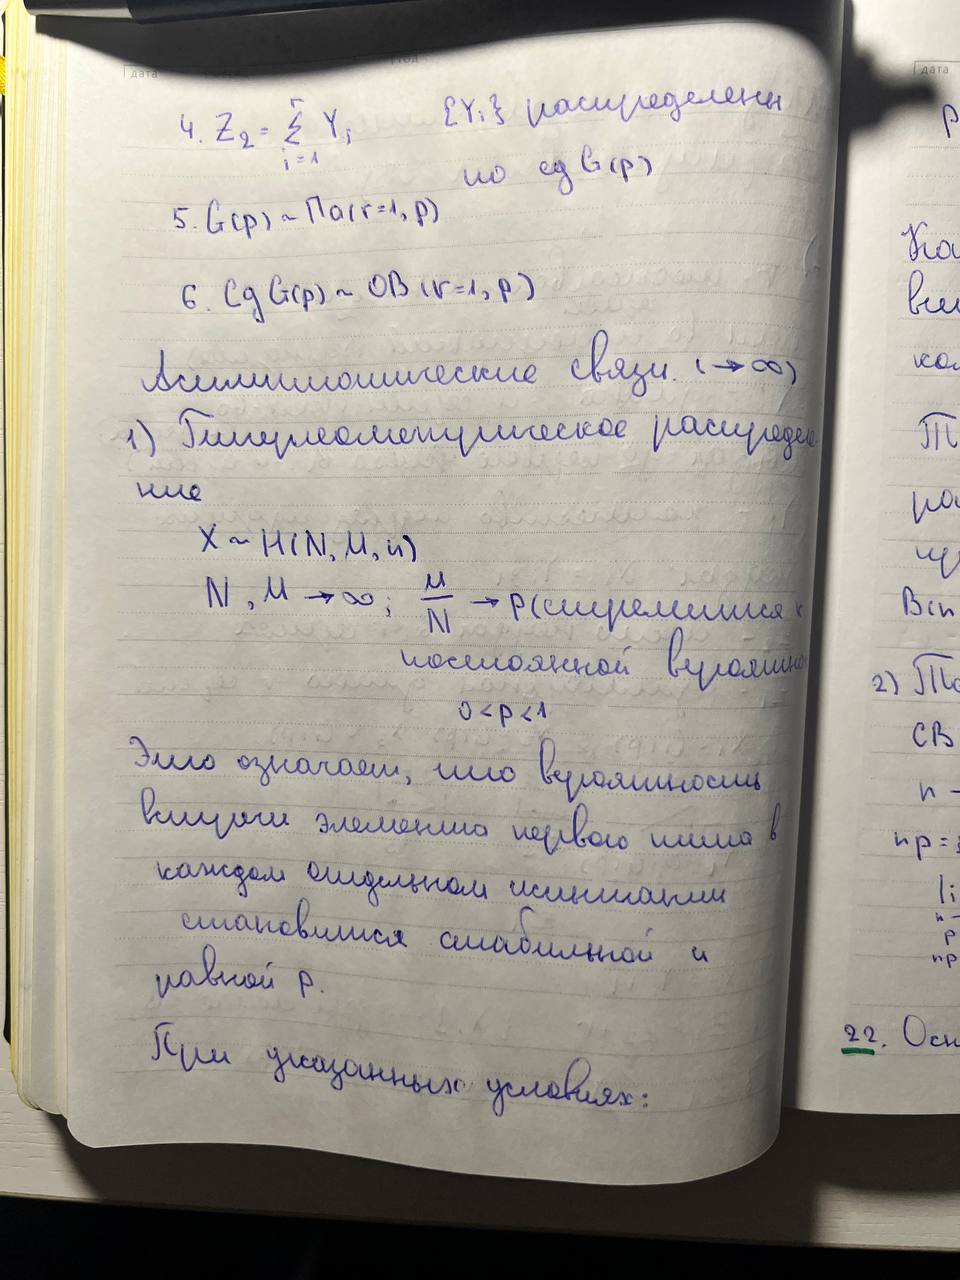 дата
год
4. Z₂ = Σ Yᵢ {Yᵢ} распределены
r
i=1
по сдG(p)
5. G(p) ~ Па(r=1, p)
6. СдG(p) ~ ОВ(r=1, p)
Асимптотические связи. (→∞)
1) Гипергеометрическое распределе
ние
X ~ H(N, M, n)
N, M → ∞; M/N → p (стремится к
постоянной вероятно
0<p<1
Это означает, что вероятность
втрачи элемента первого типа в
каждом отдельном испытании
становится стабильной и
равной p.
При указанных условиях:
дата
р
вы
ка
ра
B(n
2) По
СВ
n -
np =
li
n -
p
np
22. Осн